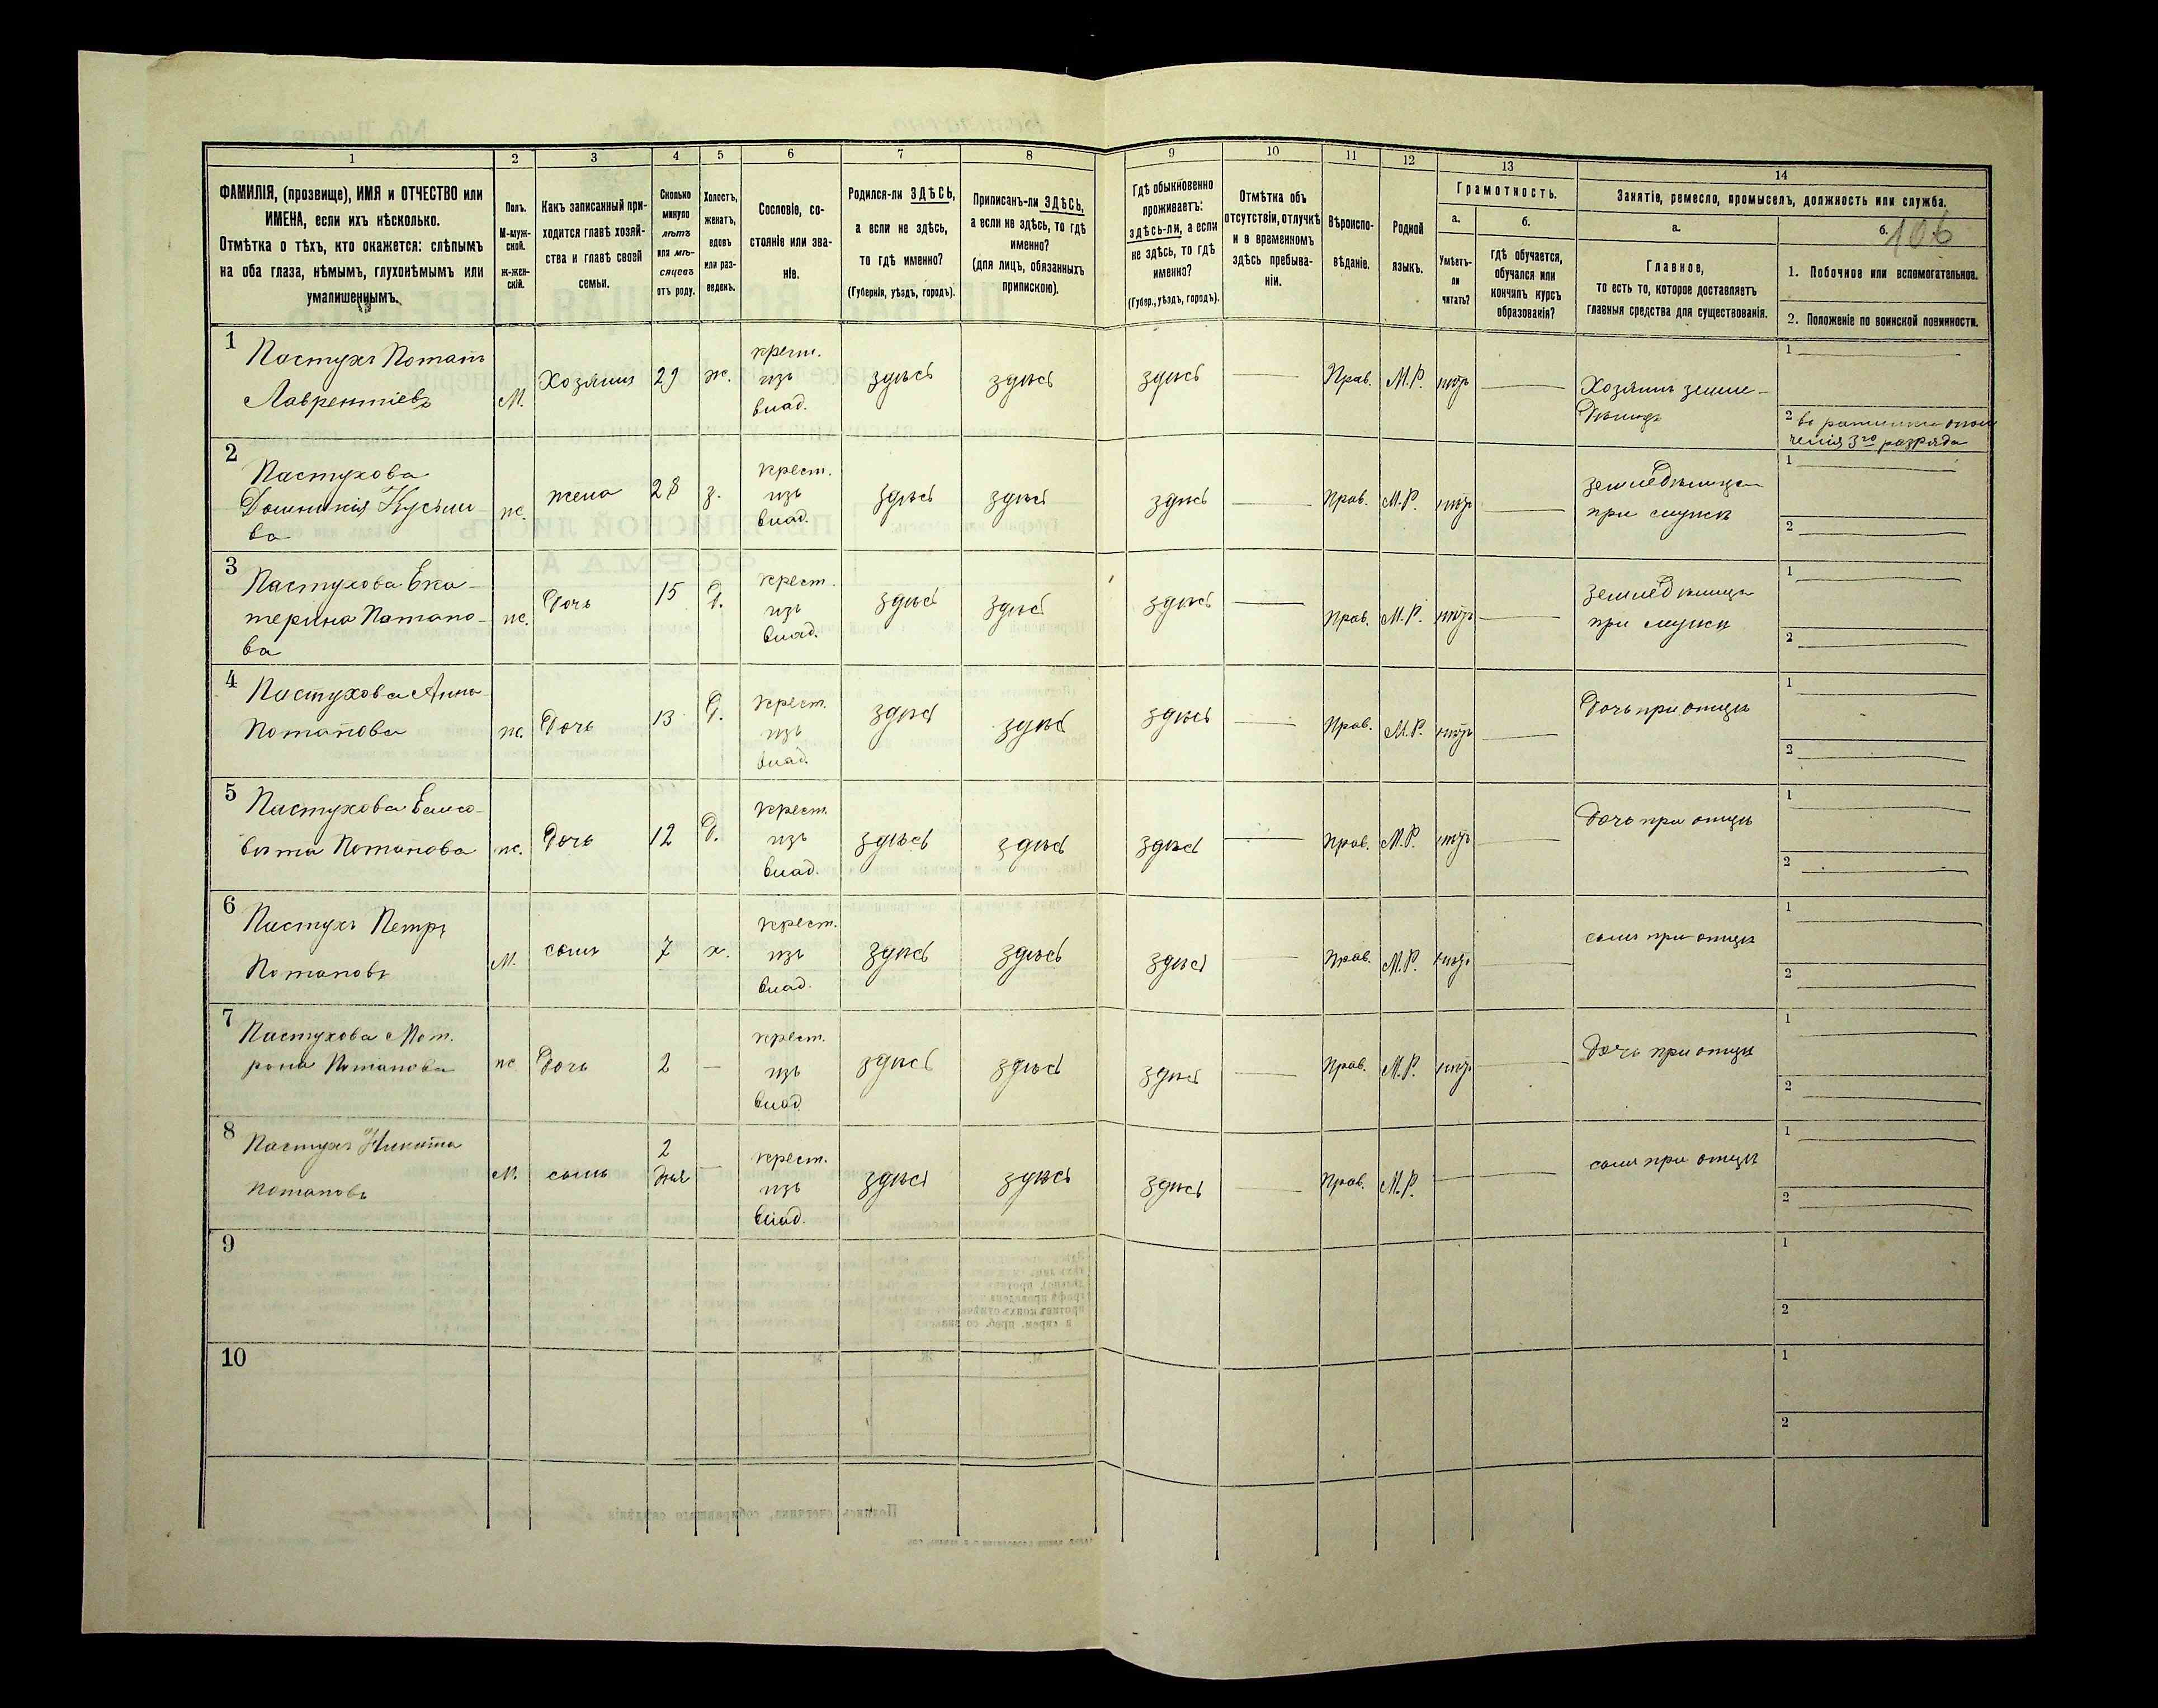 106
1 2 3 4 5 6 7 8 9 10 11 12 13 14
ФАМИЛІЯ, (прозвище), ИМЯ и ОТЧЕСТВО или
ИМЕНА, если ихъ нѣсколько.
Отмѣтка о тѣхъ, кто окажется: слѣпымъ
на оба глаза, нѣмымъ, глухонѣмымъ или
умалишеннымъ.
Полъ.
М-муж-
ской.
ж-жен-
скій.
Какъ записанный при-
ходится главѣ хозяй-
ства и главѣ своей
семьи.
Сколько
минуло
лѣтъ
или мѣ-
сяцевъ
отъ роду.
Холостъ,
женатъ,
вдовъ
или раз-
веденъ.
Сословіе, со-
стояніе или зва-
ніе.
Родился-ли ЗДѢСЬ,
а если не здѣсь,
то гдѣ именно?
(Губернія, уѣздъ, городъ).
Приписанъ-ли ЗДѢСЬ,
а если не здѣсь, то гдѣ
именно?
(для лицъ, обязанныхъ
припискою).
Гдѣ обыкновенно
проживаетъ:
здѣсь-ли, а если
не здѣсь, то гдѣ
именно?
(Губер., уѣздъ, городъ).
Отмѣтка объ
отсутствіи, отлучкѣ
и о временномъ
здѣсь пребыва-
ніи.
Вѣроиспо-
вѣданіе.
Родной
языкъ.
Грамотность.
а.
Умѣетъ-
ли
читать?
б.
Гдѣ обучается,
обучался или
кончилъ курсъ
образованія?
Занятіе, ремесло, промыселъ, должность или служба.
а.
Главное,
то есть то, которое доставляетъ
главныя средства для существованія.
б.
1. Побочное или вспомогательное.
2. Положеніе по воинской повинности.
1
Пастухъ Потапъ
Лаврентіевъ
М.
Хозяинъ
29
ж.
крест.
изъ
влад.
здѣсь
здѣсь
здѣсь
Прав.
М.Р.
нѣтъ
Хозяинъ земле-
дѣлецъ
1
2 въ ратники опол
ченія 3го разряда
2
Пастухова
ва
ж.
жена
28
з.
крест.
изъ
влад.
здѣсь
здѣсь
здѣсь
Прав.
М.Р.
нѣтъ
земледѣлица
при мужѣ
1
2
3
Пастухова Ека-
терина Потапо-
ва
ж.
Дочь
15
Д.
крест.
изъ
влад.
здѣсь
здѣсь
здѣсь
Прав.
М.Р.
нѣтъ
земледѣлица
при мужѣ
1
2
4
Пастухова Анна
Потапова
ж.
Дочь
13
Д.
крест.
изъ
влад.
здѣсь
здѣсь
здѣсь
Прав.
М.Р.
нѣтъ
Дочь при отцѣ
1
2
5
Пастухова Елиса-
вѣта Потапова
ж.
Дочь
12
Д.
крест.
изъ
влад.
здѣсь
здѣсь
здѣсь
Прав.
М.Р.
нѣтъ
Дочь при отцѣ
1
2
6
Пастухъ Петръ
Потаповъ
М.
сынъ
7
х.
крест.
изъ
влад.
здѣсь
здѣсь
здѣсь
Прав.
М.Р.
нѣтъ
сынъ при отцѣ
1
2
7
Пастухова Мот.
рона Потапова
ж
Дочь
2
крест.
изъ
влад
здѣсь
здѣсь
здѣсь
Прав.
М.Р.
нѣтъ
Дочь при отцѣ
1
2
8
Пастухъ Никита
Потаповъ
М.
сынъ
2
дня
крест.
изъ
влад.
здѣсь
здѣсь
здѣсь
Прав.
М.Р.
сынъ при отцѣ
1
2
9
1
2
10
1
2